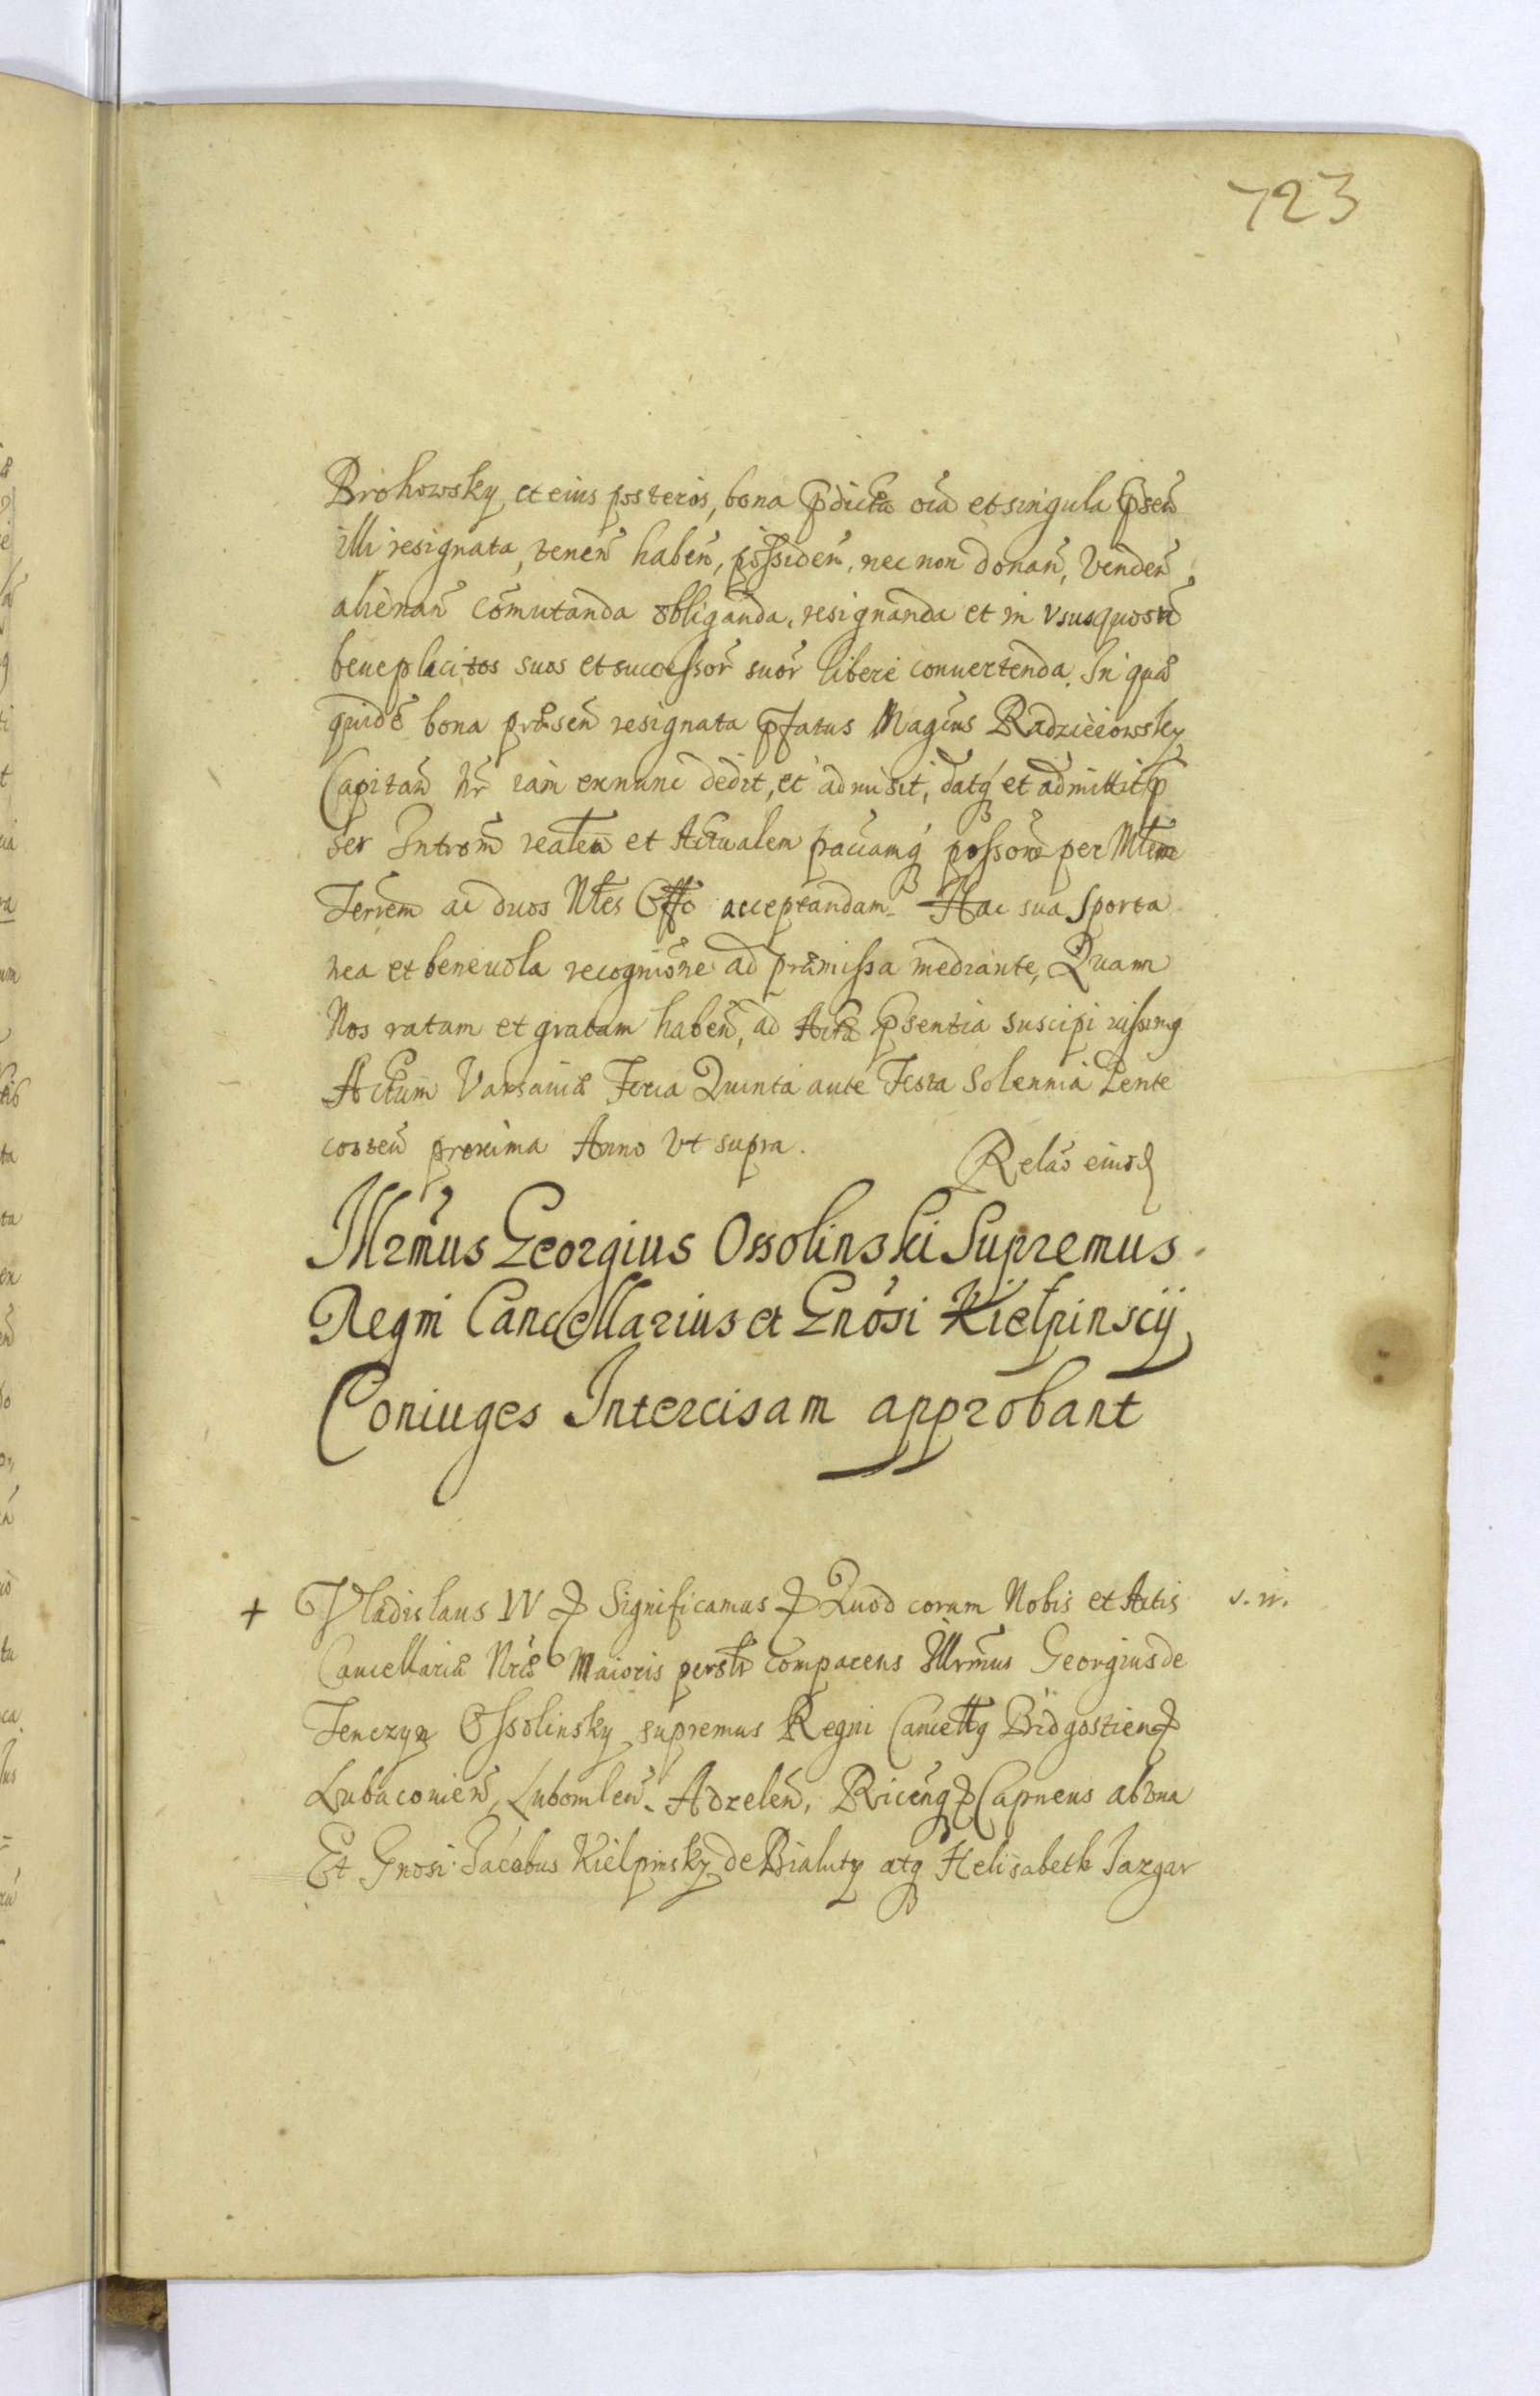 723
Brohowsky et eius posteros, bona pdicta oia et singula psen
illi resignata, tenen haben, possiden, nec non donan, venden
alienan comutanda obliganda, resignanda et in vsus quosuis
beneplacitos suos et successor suor libere conuertenda. In quae
quide bona praesen resignata pfatus Magcus Radzieiowsky
Capitan Nr iam exnunc dedit, et admisit, datq et admittit p
ser Introm realem et Actualem paciamq possom per Mtem
Terrem ac duos Nles Offo acceptandam. Hac sua sponta
nea et beneuola recognitione ad praemissa mediante, Quam
Nos ratam et gratam haben, ad Acta psentia suscipi iussimq
Actum Varsauiae Feria Quinta ante Festa Solennia Pente
costen proxima Anno vt supra.
Relao eiusd
Illrmus Georgius Ossolinski Supremus
Regni Cancellarius et Gnosi Kielpinscij
Coniuges Intercisam approbant
+ Vladislaus IV Significamus Quod coram Nobis et Actis s. n.
Cancellariae Nrae Maioris persltr comparens Illrmus Georgius de
Tenczyn Ossolinsky supremus Regni Cancellq Bidgostien
Lubaconien, Lubomlen. Adzelen, Ricenq Capneus ab vna
Et Gnosi Jacobus Kielpinsky de Bialuty atq Helisabeth Jazgar